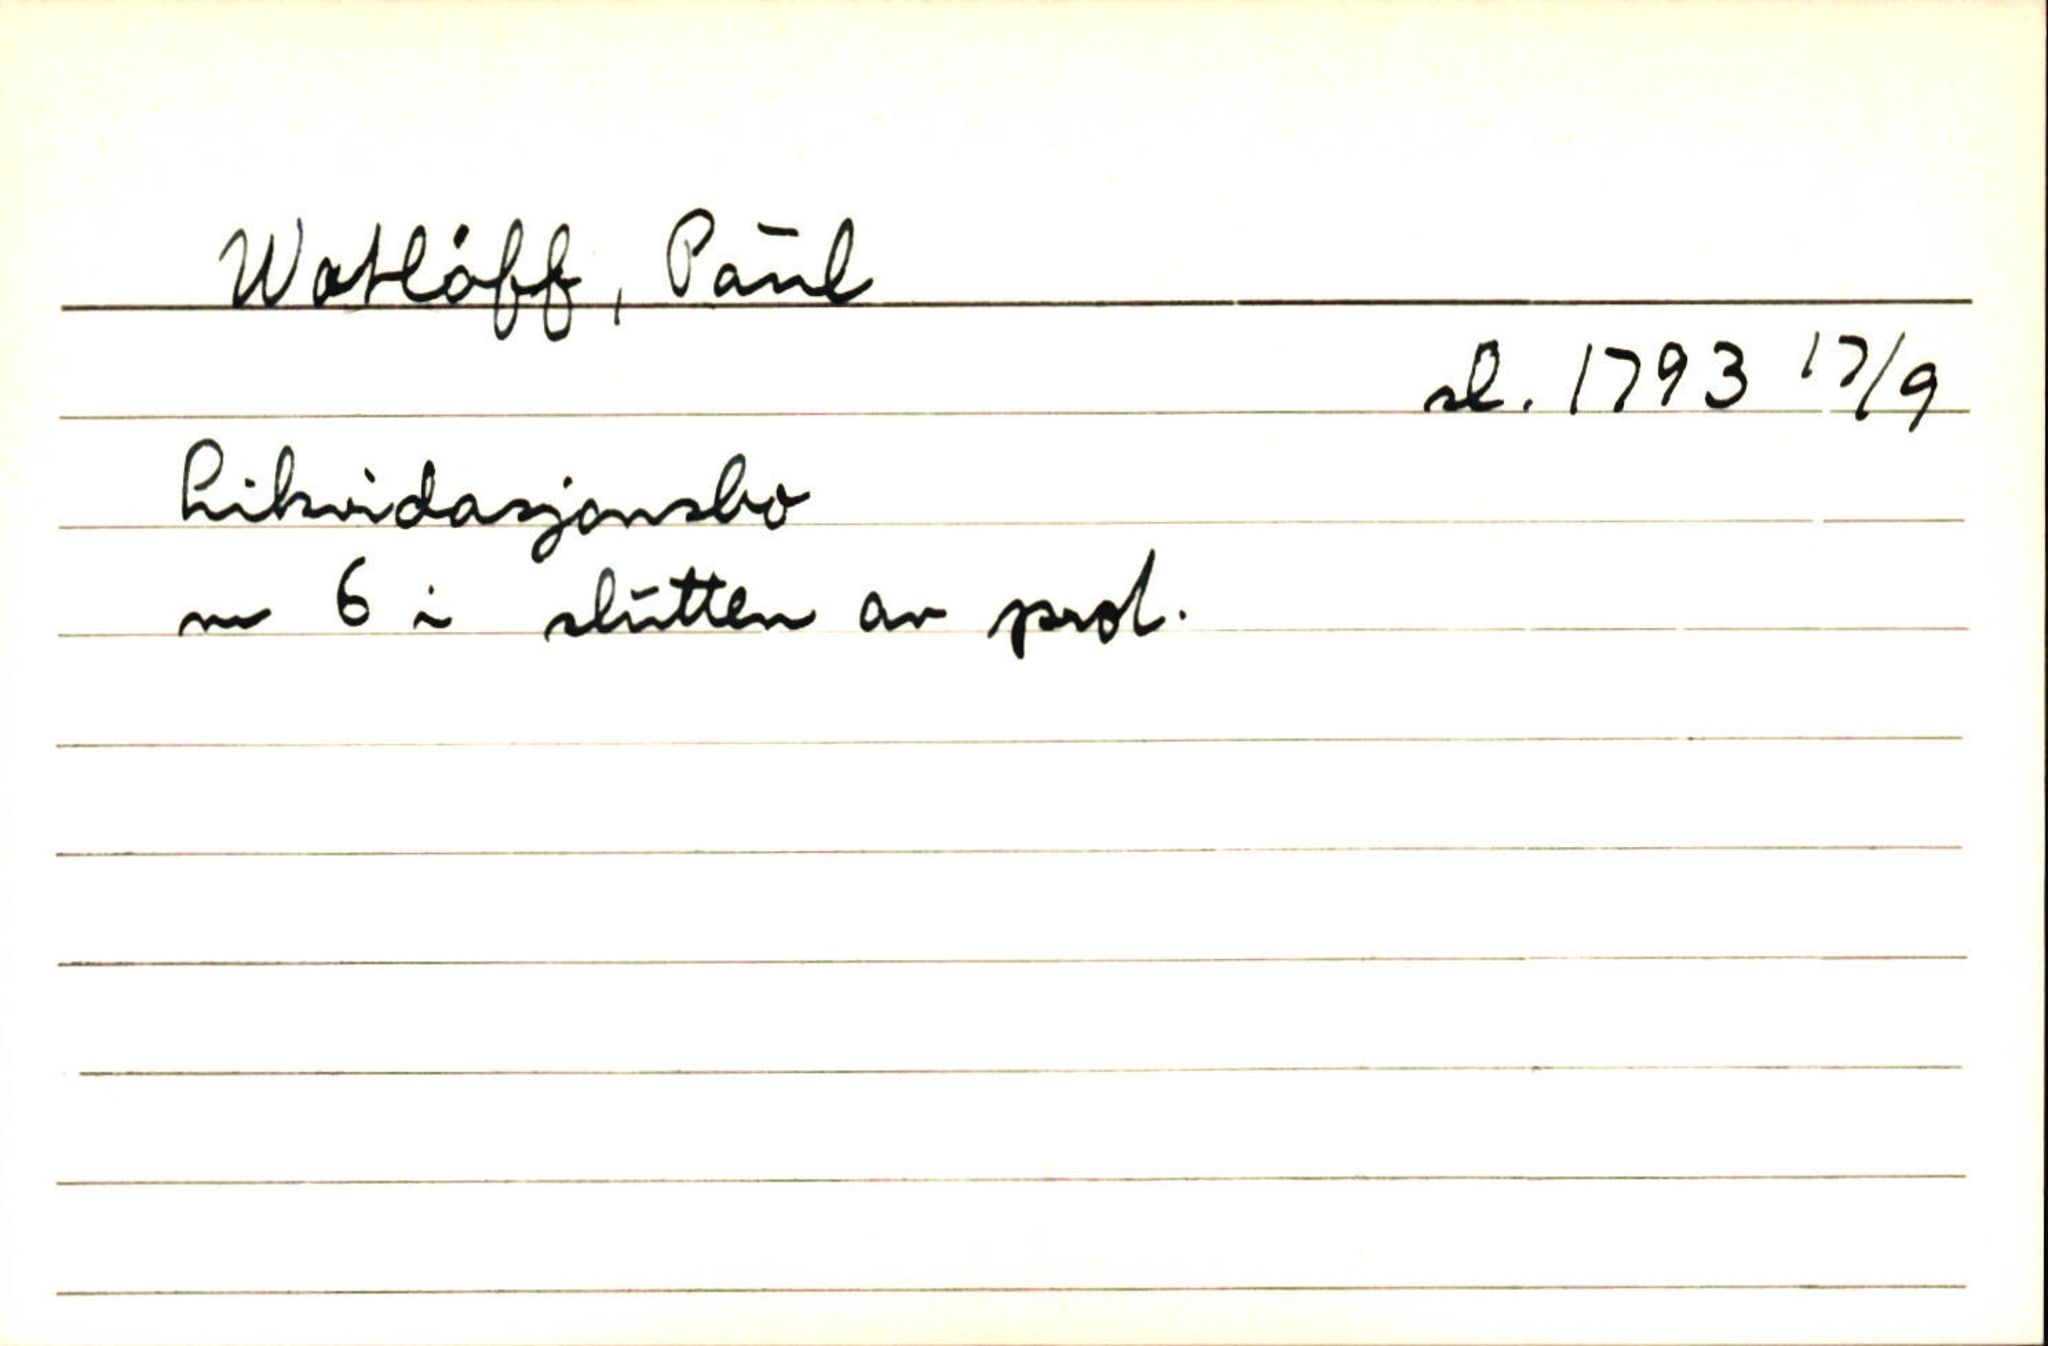 Watlöff, Paul
sl. 1793 17/9
Likvidasjonsbo
nr 6 i slutten av prot.